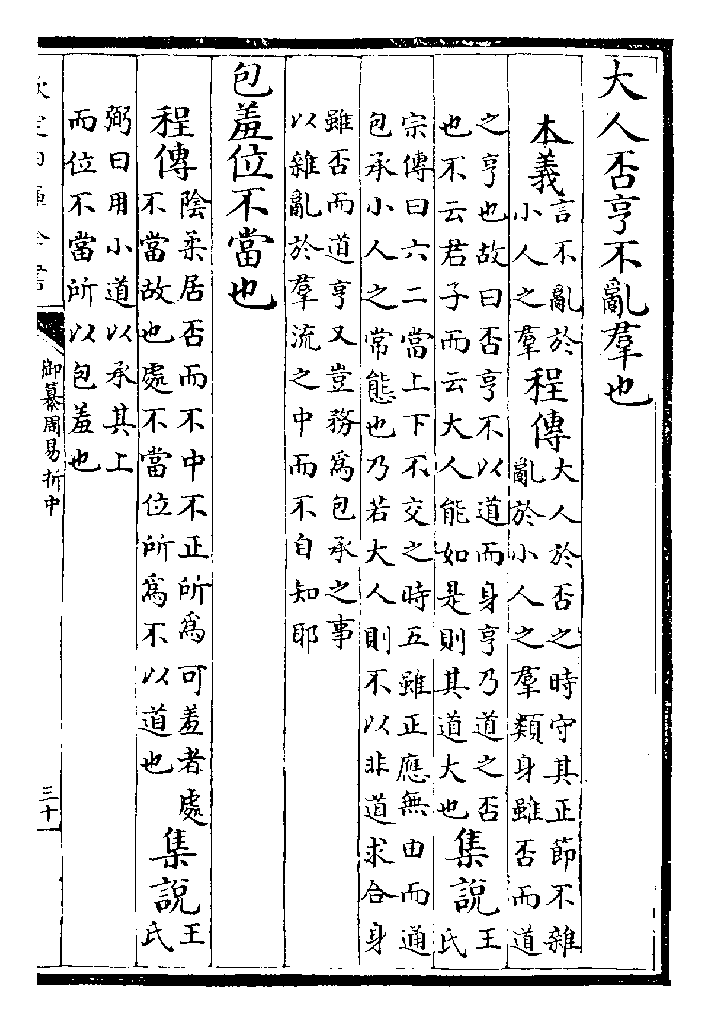 大人否亨不亂羣也
本義言不亂於小人之羣程傳大人於否之時守其正節不雜亂於小人之羣類身雖否而道
之亨也故曰否亨不以道而身亨乃道之否也不云君子而云大人能如是則其道大也集說王氏
宗傳曰六二當上下不交之時五雖正應無由而通包承小人之常態也乃若大人則不以非道求合身
雖否而道亨又豈務爲包承之事以雜亂於羣流之中而不自知耶
包羞位不當也
程傳陰柔居否而不中不正所爲可羞者處不當故也處不當位所爲不以道也集說王氏
弼曰用小道以承其上而位不當所以包羞也
欽定四庫全書
御纂周易折中
三十